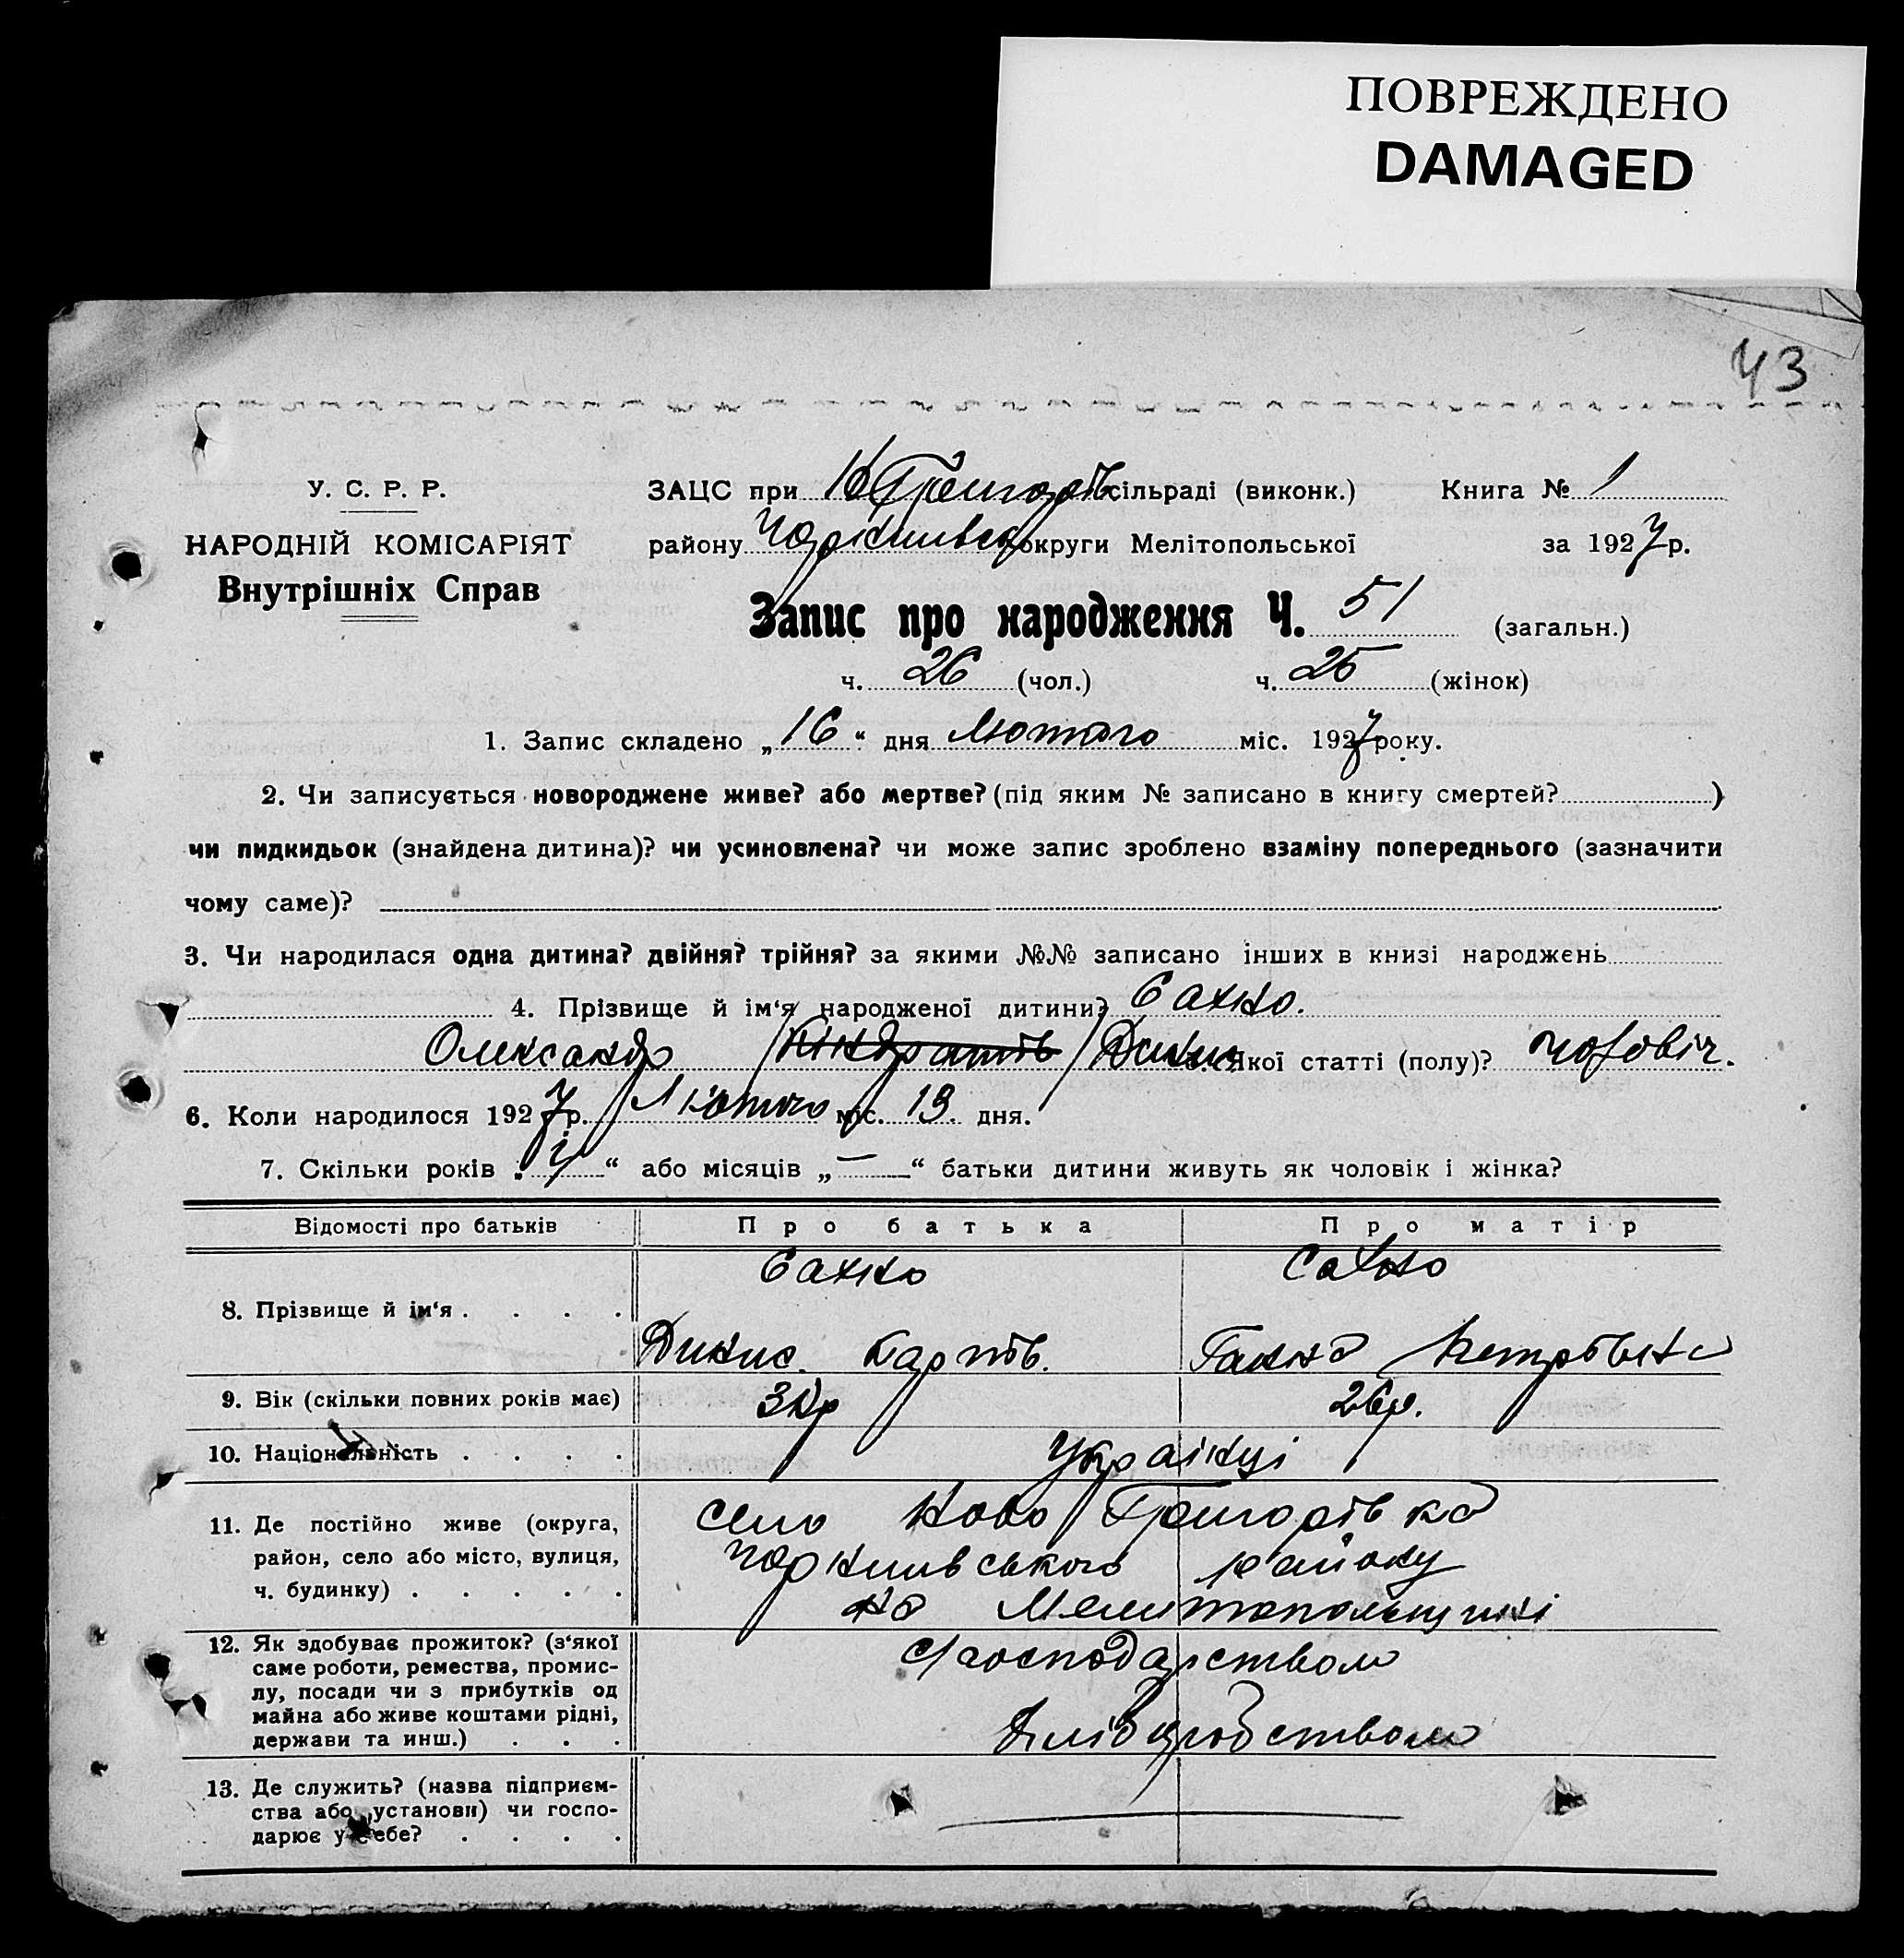 ПОВРЕЖДЕНО
DAMAGED
43
У. С. Р. Р.
НАРОДНІЙ КОМІСАРІЯТ
Внутрішніх Справ
ЗАЦС при сільраді (виконк.) Книга № 1
району округи Мелітопольської за 1927 р.
Запис про народження Ч. 51 (загальн.)
ч. 26 (чол.) ч. 25 (жінок)
1. Запис складено „16“ дня Лютого міс. 1927 року.
2. Чи записується новороджене живе? або мертве? (під яким № записано в книгу смертей? )
чи пидкидьок (знайдена дитина)? чи усиновлена? чи може запис зроблено взаміну попереднього (зазначити
чому саме)?
3. Чи народилася одна дитина? двійня? трійня? за якими №№ записано інших в книзі народжень
4. Прізвище й ім‘я народженої дитини? Сахно.
Олександр Кіндратів Якої статті (полу)? чоловіч.
6. Коли народилося 1927 р. Лютого міс. 13. дня.
7. Скільки років „ “ або місяців „—“ батьки дитини живуть як чоловік і жінка?
Відомості про батьків Про батька Про матір
8. Прізвище й ім‘я . . . . Сахно Сахно
Динис. Карпов. Ганна Петровна
9. Вік (скільки повних років має) 26р.
10. Національність . . . . Українці
11. Де постійно живе (округа, село Ново Григорівка
район, село або місто, вулиця, району
ч. будинку) . . . . . на Мелитопольщині
12. Як здобуває прожиток? (з‘якої господарством
саме роботи, ремества, промис-
лу, посади чи з прибутків од
майна або живе коштами рідні, хліборобством
держави та инш.) . . .
13. Де служить? (назва підприєм-
ства або установи) чи госпо-
дарює у себе? . . . .